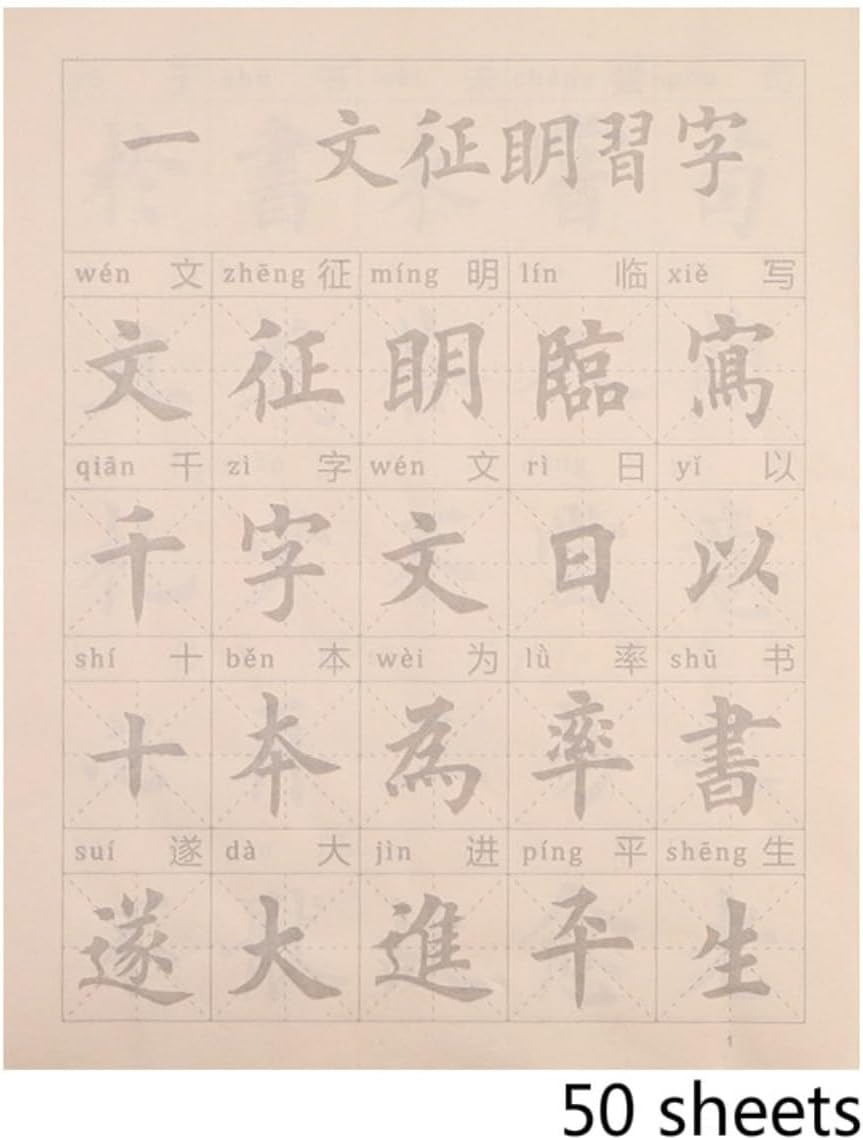 一 文征明習字
wén 文 zhēng 征 míng 明 lín 临 xiě 写
文 征 明 臨 寫
qiān 千 zì 字 wén 文 rì 日 yǐ 以
千 字 文 日 以
shí 十 běn 本 wèi 为 lǜ 率 shū 书
十 本 為 率 書
suí 遂 dà 大 jìn 进 píng 平 shēng 生
遂 大 進 平 生
1
50 sheets